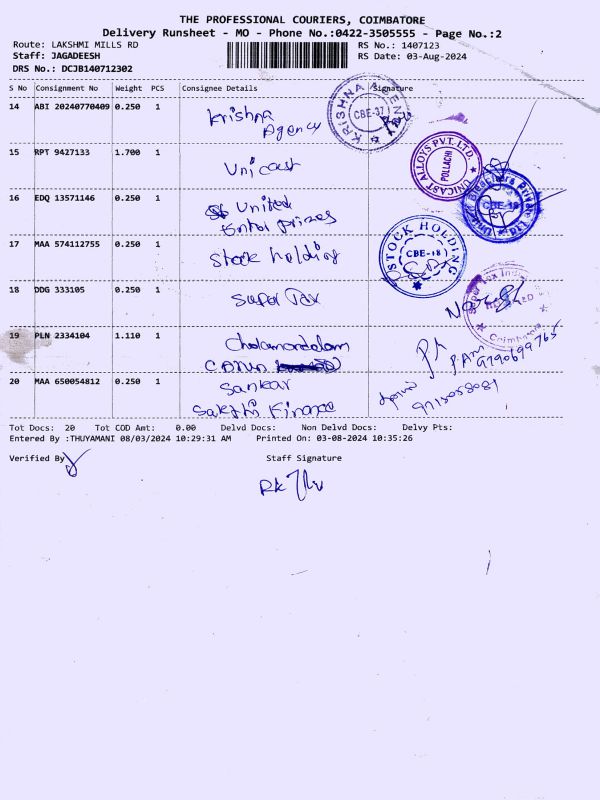 THE PROFESSIONAL COURIERS, COIMBATORE
Delivery Runsheet - MO - Phone No.:0422-3505555 - Page No.:2
Route: LAKSHMI MILLS RD
RS No.: 1407123
Staff: JAGADEESH
RS Date: 03-Aug-2024
DRS No.: DCJB140712302
S No Consignment No Weight PCS Consignee Details Signature
14 ABI 20240770409 0.250 1 Krishna
Agency
KRISHNA AGENCY
CBE-37
15 RPT 9427133 1.700 1 Unicast
UNICAST ALLOYS PVT. LTD.
POLLACHI
16 EDQ 13571146 0.250 1 United
Enter prizes
Private Ltd.
17 MAA 574112755 0.250 1 Stock holding
STOCK HOLDING
CBE-18
18 DDG 333105 0.250 1 Super Tax
Super Tex
Coimbatore
19 PLN 2334104 1.110 1 Cholamandalam
20 MAA 650054812 0.250 1 Sankar
Sakthi Finance
Tot Docs: 20 Tot COD Amt: 0.00 Delvd Docs: Non Delvd Docs: Delvy Pts:
Entered By :THUYAMANI 08/03/2024 10:29:31 AM Printed On: 03-08-2024 10:35:26
Verified By
Staff Signature